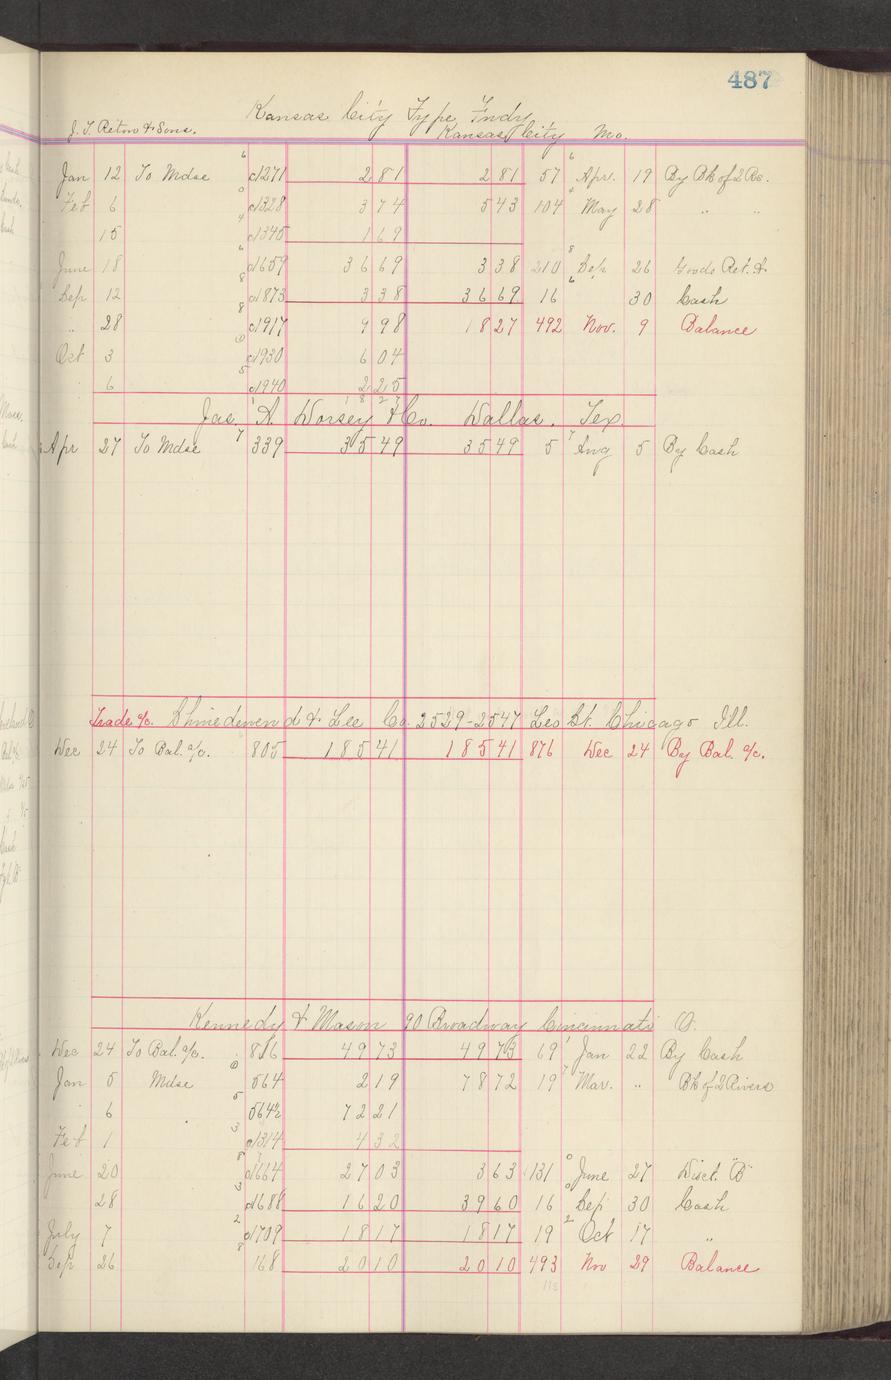 487
Kansas City Type Fndy
J. T. & Sons. Kansas City Mo.
Jan 12 To Mdse 6 c1271 2 81 2 81 57 6 Apr. 19 By Bk of 2 Rs.
Feb 6 0 c1328 3 74 5 43 104 4 May 28 " "
15 4 c1345 1 69
June 18 6 c1659 36 69 3 38 210 8 Sep 26 Goods Ret. &
Sep 12 8 c1873 3 38 36 69 16 6 30 Cash
" 28 8 c1917 9 98 18 27 492 Nov. 9 Balance
Oct 3 0 c1930 6 04
6 5 c1940 2 25
18 27
Jas. A. Dorsey & Co. Dallas, Tex.
Apr 27 To Mdse 7 339 35 49 35 49 5 7 Aug 5 By Cash
Trade a/c. Shniedewend & Lee Co. 2529-2547 Leo St. Chicago Ill.
Dec 24 To Bal. a/c. 805 185 41 185 41 876 Dec 24 By Bal. a/c.
Kennedy & Mason 90 Broadway Cincinnati O.
Dec 24 To Bal. a/c. 816 49 73 49 73 69 1 Jan 22 By Cash
Jan 5 Mdse 0 564 2 19 78 72 19 7 Mar. " Bk of 2 Rivers
6 5 564½ 72 21
Feb 1 3 c1314 4 32
June 20 8 c1664 27 03 3 63 131 0 June 27 Disct. "B"
28 3 c1688 16 20 39 60 16 0 Sep 30 Cash
July 7 2 c1709 18 17 18 17 19 2 Oct 17 "
Sep 26 8 168 20 10 20 10 493 Nov 29 Balance